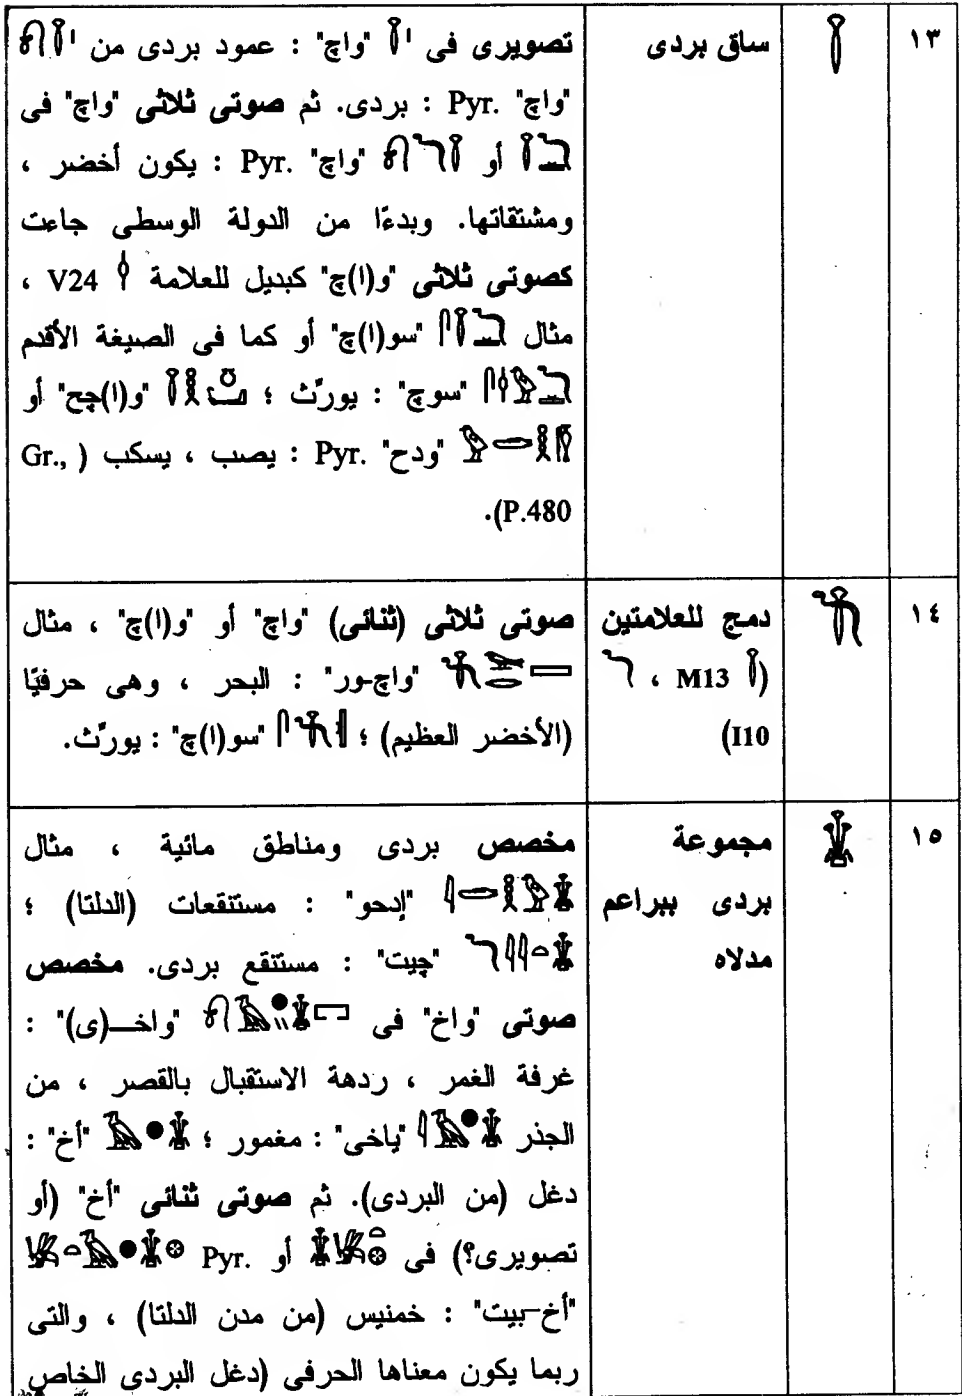 ١٣ ساق بردى تصويرى فى "واچ" : عمود بردى من
"واچ" Pyr. : بردى. ثم صوتى ثلاثى "واچ" فى
أو "واچ" Pyr. : يكون أخضر ،
ومشتقاتها. وبدءًا من الدولة الوسطى جاءت
كصوتى ثلاثى "و(ا)چ" كبديل للعلامة V24 ،
مثال "سو(ا)چ" أو كما فى الصيغة الأقدم
"سوچ" : يورَّث ؛ "و(ا)چح" أو
"ودح" Pyr. : يصب ، يسكب ( Gr.,
P.480).
١٤ دمج للعلامتين صوتى ثلاثى (ثنائى) "واچ" أو "و(ا)چ" ، مثال
(M13 ، "واچ-ور" : البحر ، وهى حرفيًا
I10) (الأخضر العظيم) ؛ "سو(ا)چ" : يورَّث.
١٥ مجموعة مخصص بردى ومناطق مائية ، مثال
بردى ببراعم "إدحو" : مستنقعات (الدلتا) ؛
مدلاه "چيت" : مستنقع بردى. مخصص
صوتى "واخ" فى "واخـ(ى)" :
غرفة الغمر ، ردهة الاستقبال بالقصر ، من
الجذر "ياخى" : مغمور ؛ "أخ" :
دغل (من البردى). ثم صوتى ثنائى "أخ" (أو
تصويرى؟) فى أو Pyr.
"أخ-بيت" : خمنيس (من مدن الدلتا) ، والتى
ربما يكون معناها الحرفى (دغل البردى الخاص